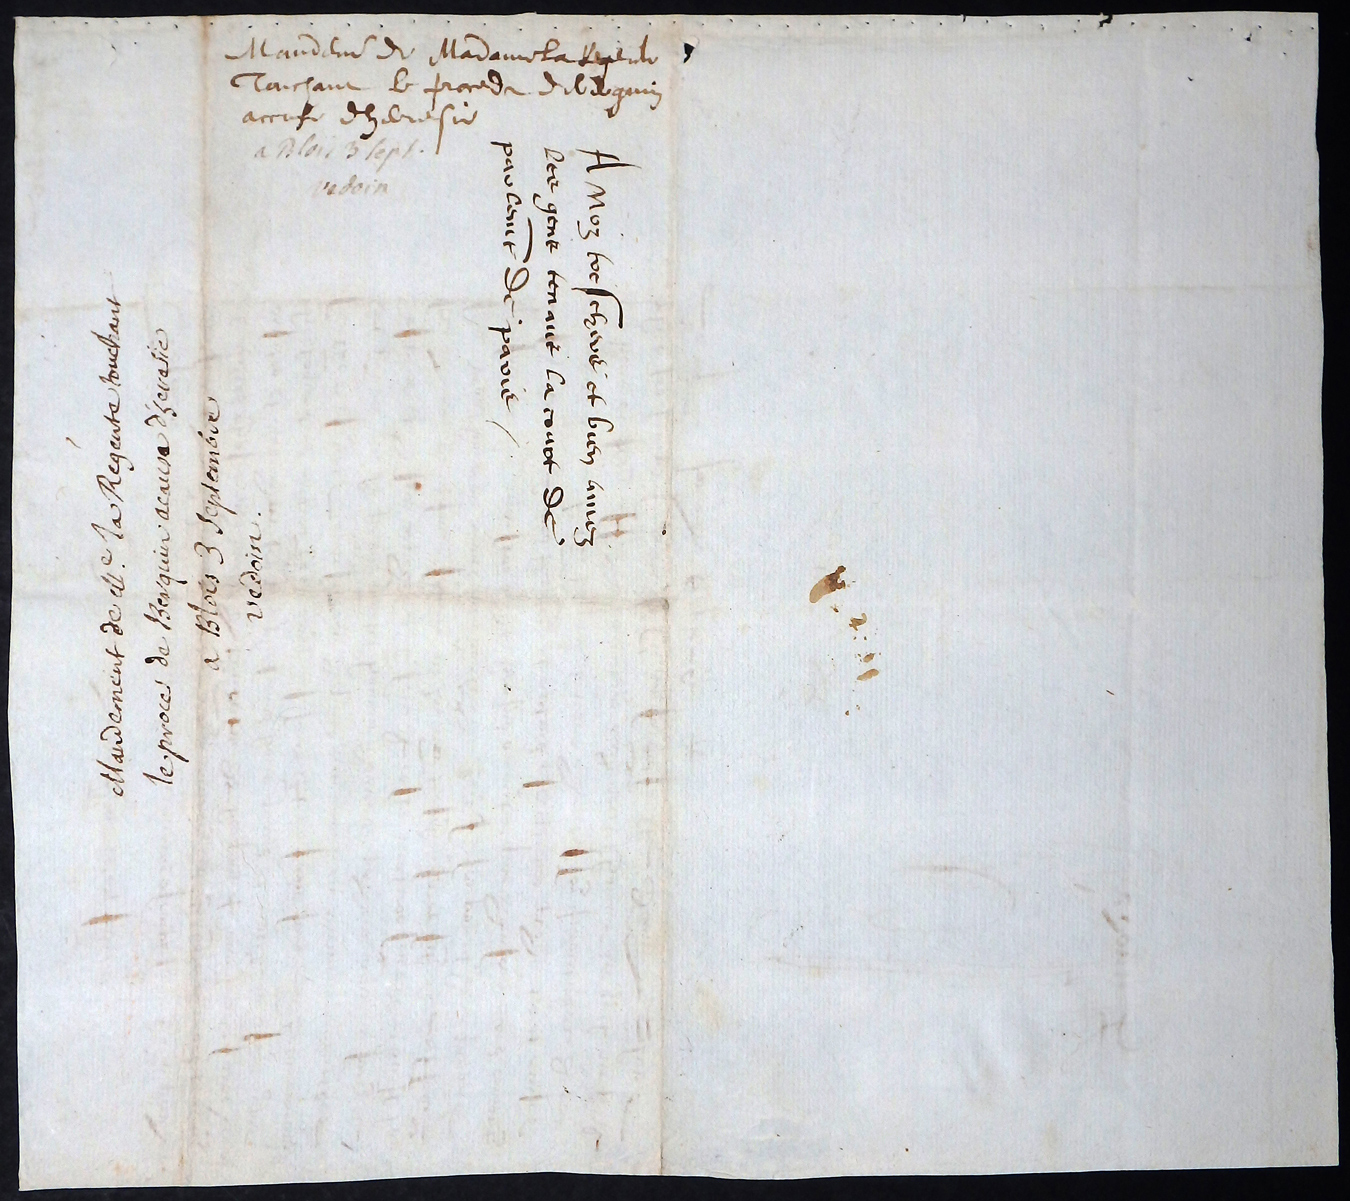 Mandemt de Madame la Regente
Touchant le procede de Berquin
accusé dheresie
a Blois 3 sept.
vedoin
A Mes treschers et bien amez
les gens tenans la court de
parlemt de paris
Mandement de Me. la Regente touchant
le procés de Berquin acausa d'heresie
a Blois 3 septembre
vedoin.